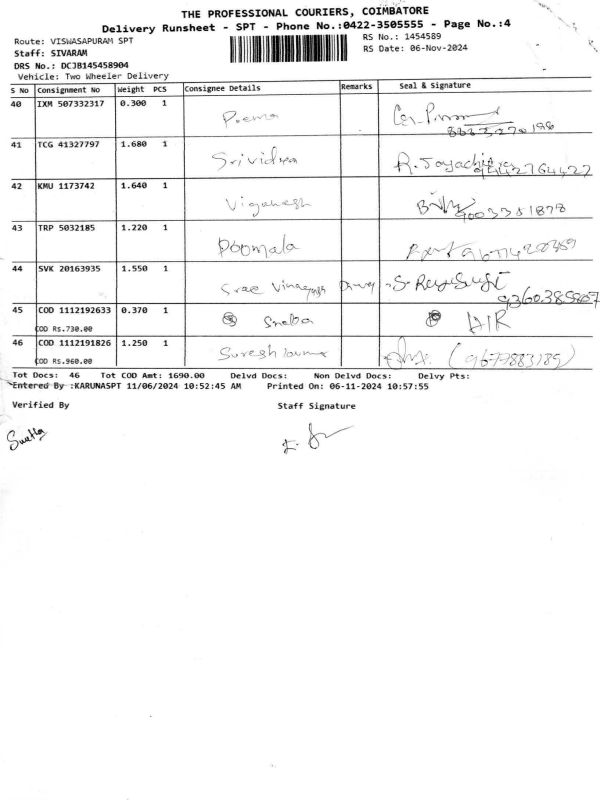 THE PROFESSIONAL COURIERS, COIMBATORE
Delivery Runsheet - SPT - Phone No.:0422-3505555 - Page No.:4
Route: VISWASAPURAM SPT RS No.: 1454589
Staff: SIVARAM RS Date: 06-Nov-2024
DRS No.: DCJB145458904
Vehicle: Two Wheeler Delivery
S No Consignment No Weight PCS Consignee Details Remarks Seal & Signature
40 IXM 507332317 0.300 1 Prema
41 TCG 41327797 1.680 1 Srividya 9442764427
42 KMU 1173742 1.640 1 Vignesh 9003351878
43 TRP 5032185 1.220 1 Poomala
44 SVK 20163935 1.550 1 Sree
45 COD 1112192633 0.370 1 Sneba AIR
COD Rs.730.00
46 COD 1112191826 1.250 1 Suresh kumar (9677883189)
COD Rs.960.00
Tot Docs: 46 Tot COD Amt: 1690.00 Delvd Docs: Non Delvd Docs: Delvy Pts:
Entered By :KARUNASPT 11/06/2024 10:52:45 AM Printed On: 06-11-2024 10:57:55
Verified By Staff Signature